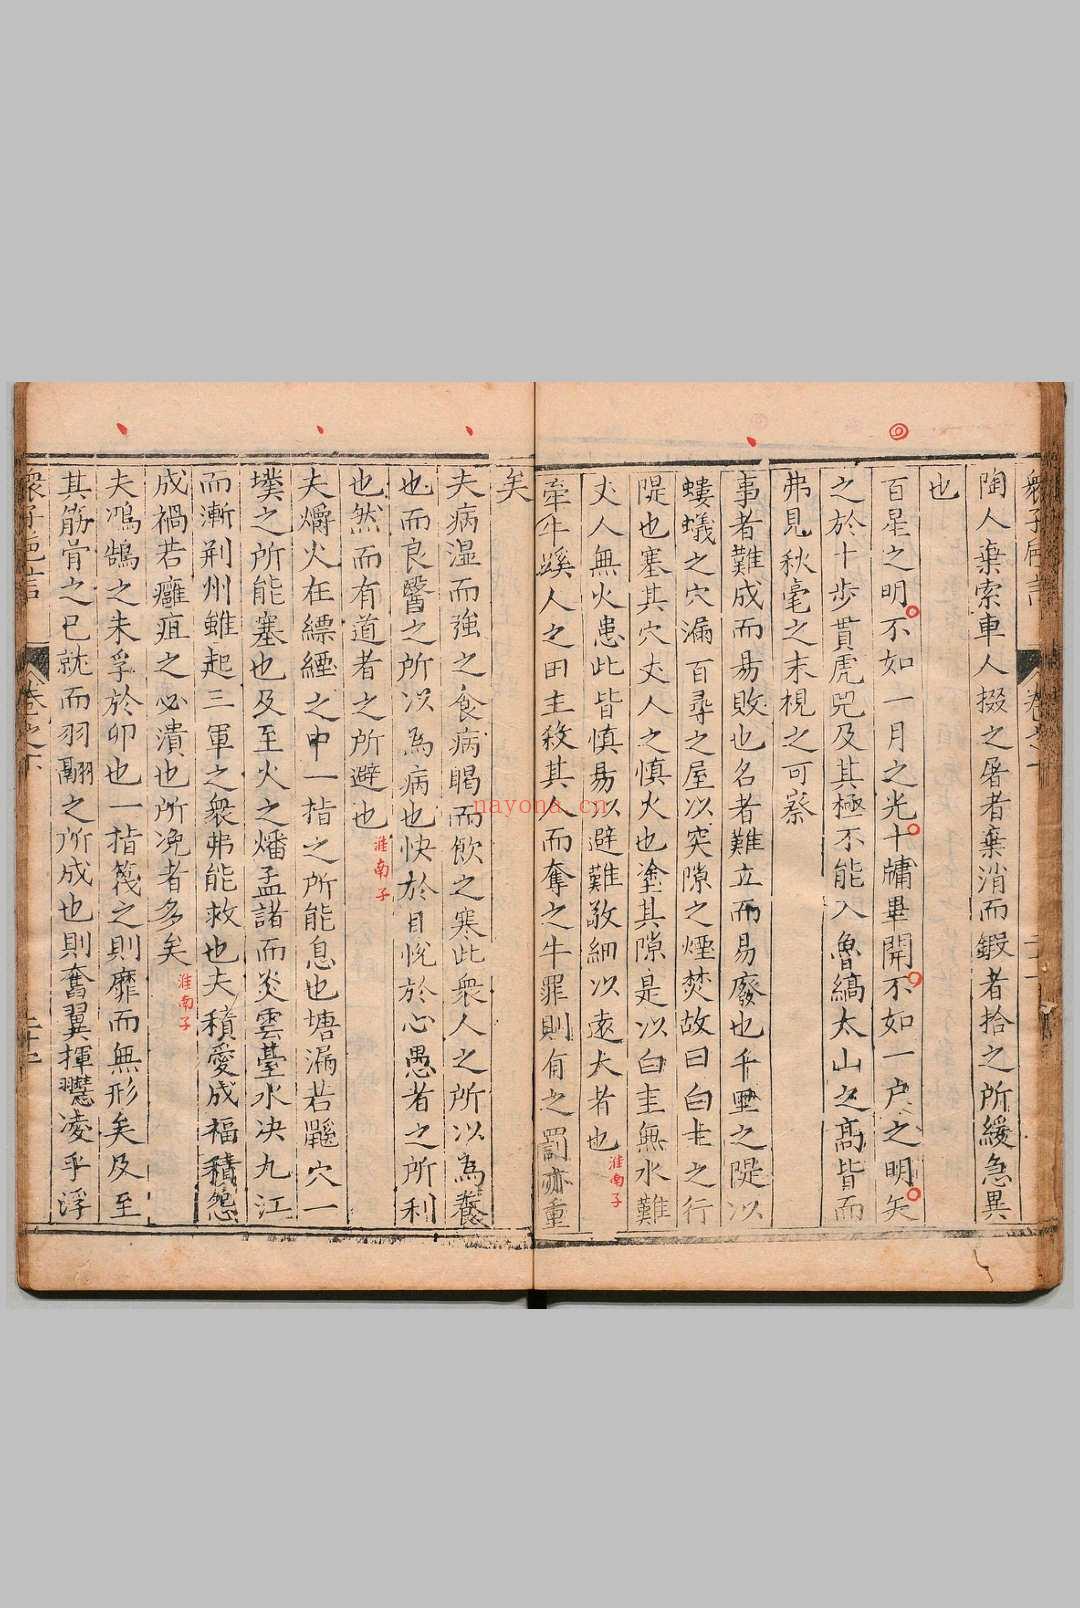 陶人棄索車人掇之屠者棄消而鍛者拾之所緩急異
也
百星之明不如一月之光十牗畢開不如一户之明矢
之於十步貫虎兕及其極不能入魯縞太山之高皆而
弗見秋毫之末視之可察
事者難成而易敗也名者難立而易廢也千里之隄以
螻蟻之穴漏百尋之屋以突隙之煙焚故曰白圭之行
隄也塞其穴丈人之慎火也塗其隙是以白圭無水難
丈人無火患此皆慎易以避難敬細以遠大者也
淮南子
牽牛蹊人之田主殺其人而奪之牛罪則有之罰亦重
矣
夫病湿而強之食病暍而飲之寒此衆人之所以為養
也而良醫之所以為病也快於目悅於心愚者之所利
也然而有道者之所避也
淮南子
夫爝火在縹煙之中一指之所能息也塘漏若鼷穴一
墣之所能塞也及至火之燔孟諸而炎雲臺水决九江
而漸荆州雖起三軍之衆弗能救也夫積愛成福積怨
成禍若癰疽之必潰也所浼者多矣
淮南子
夫鴻鵠之未孚於卵也一指篾之則靡而無形矣及至
其筋骨之已就而羽翮之所成也則奮翼揮䎐凌乎浮
nayona.cn